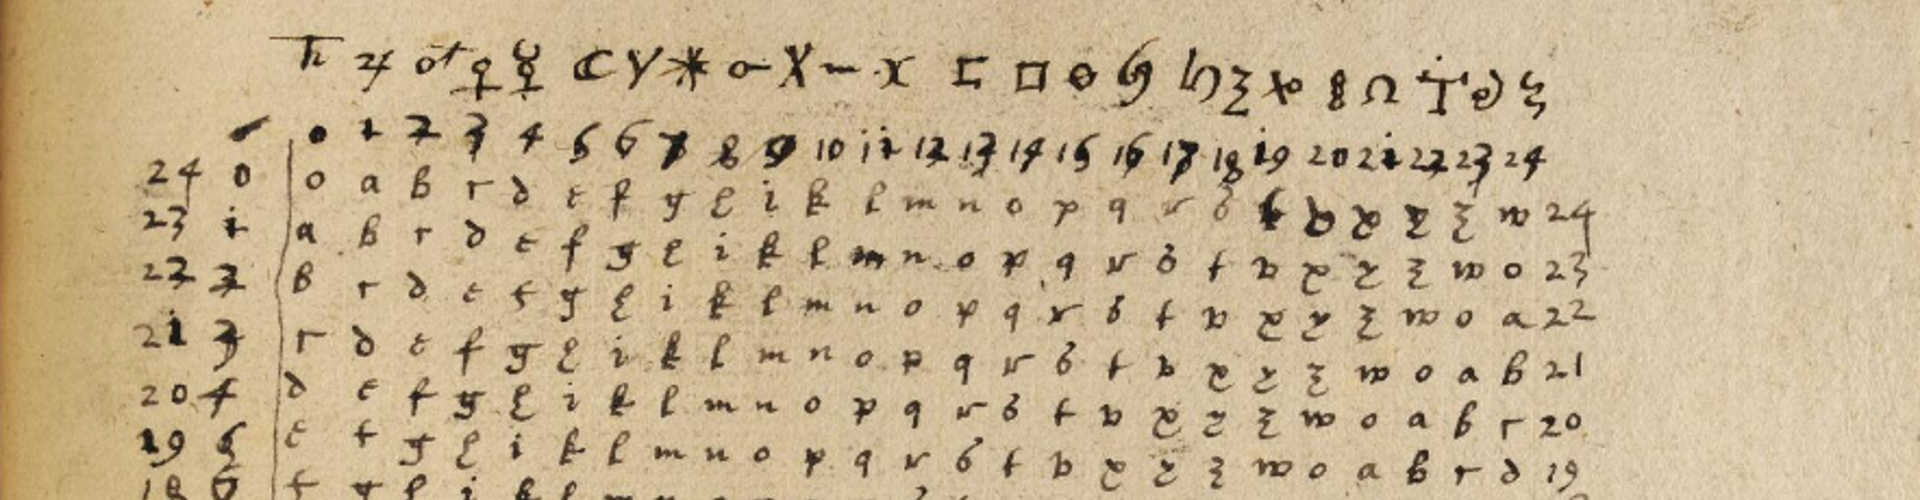 ♄ ♃ ♂ ♀ ☿ ☾ Y * X - x □
0 1 2 3 4 5 6 7 8 9 10 11 12 13 14 15 16 17 18 19 20 21 22 23 24
24 0 o a b c d e f g h i k l m n o p q r s t v x y z w 24
23 1 a b c d e f g h i k l m n o p q r s t v x y z w o 23
22 2 b c d e f g h i k l m n o p q r s t v x y z w o a 22
21 3 c d e f g h i k l m n o p q r s t v x y z w o a b 21
20 4 d e f g h i k l m n o p q r s t v x y z w o a b c 20
19 5 e f g h i k l m n o p q r s t v x y z w o a b c d 19
18 6 f g h i k l m n